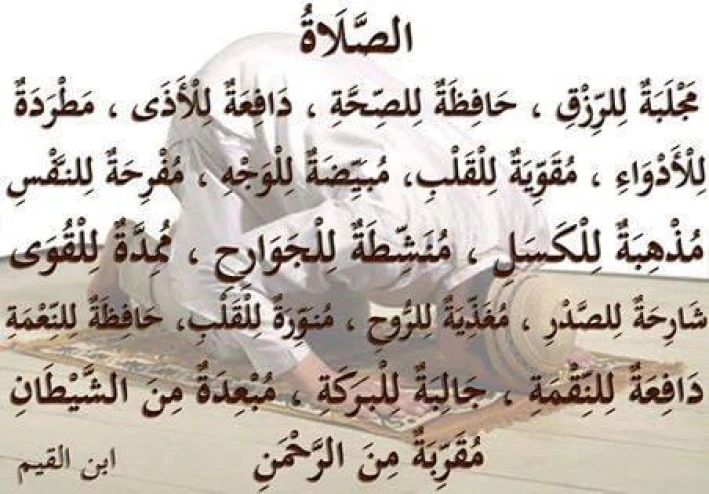 الصَّلَاةُ
مَجْلَبَةٌ لِلرِّزْقِ ، حَافِظَةٌ لِلصِّحَّةِ ، دَافِعَةٌ لِلْأَذَى ، مَطْرَدَةٌ
لِلْأَدْوَاءِ ، مُقَوِّيَةٌ لِلْقَلْبِ، مُبَيِّضَةٌ لِلْوَجْهِ ، مُفْرِحَةٌ لِلنَّفْسِ
مُذْهِبَةٌ لِلْكَسَلِ ، مُنَشِّطَةٌ لِلْجَوَارِحِ ، مُمِدَّةٌ لِلْقُوَى
شَارِحَةٌ لِلصَّدْرِ ، مُغَذِّيَةٌ لِلرُّوحِ ، مُنَوِّرَةٌ لِلْقَلْبِ، حَافِظَةٌ لِلنِّعْمَةِ
دَافِعَةٌ لِلنِّقْمَةِ ، جَالِبَةٌ لِلْبَرَكَةِ ، مُبْعِدَةٌ مِنَ الشَّيْطَانِ
مُقَرِّبَةٌ مِنَ الرَّحْمَنِ
ابن القيم